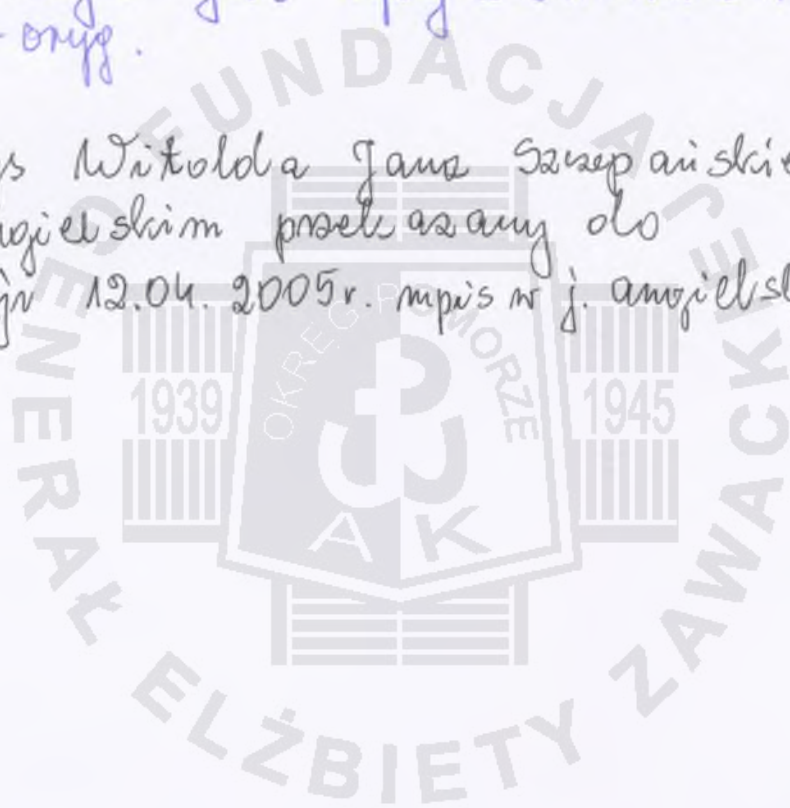 oryg.
s Witolda Jana Szczepańskie
ngielskim przekazany do
12.04.2005r. mpis w j. angielsk
FUNDACJA
GENERAŁ ELŻBIETY ZAWACKIEJ
OKRĘG POMORZE
1939
1945
A K